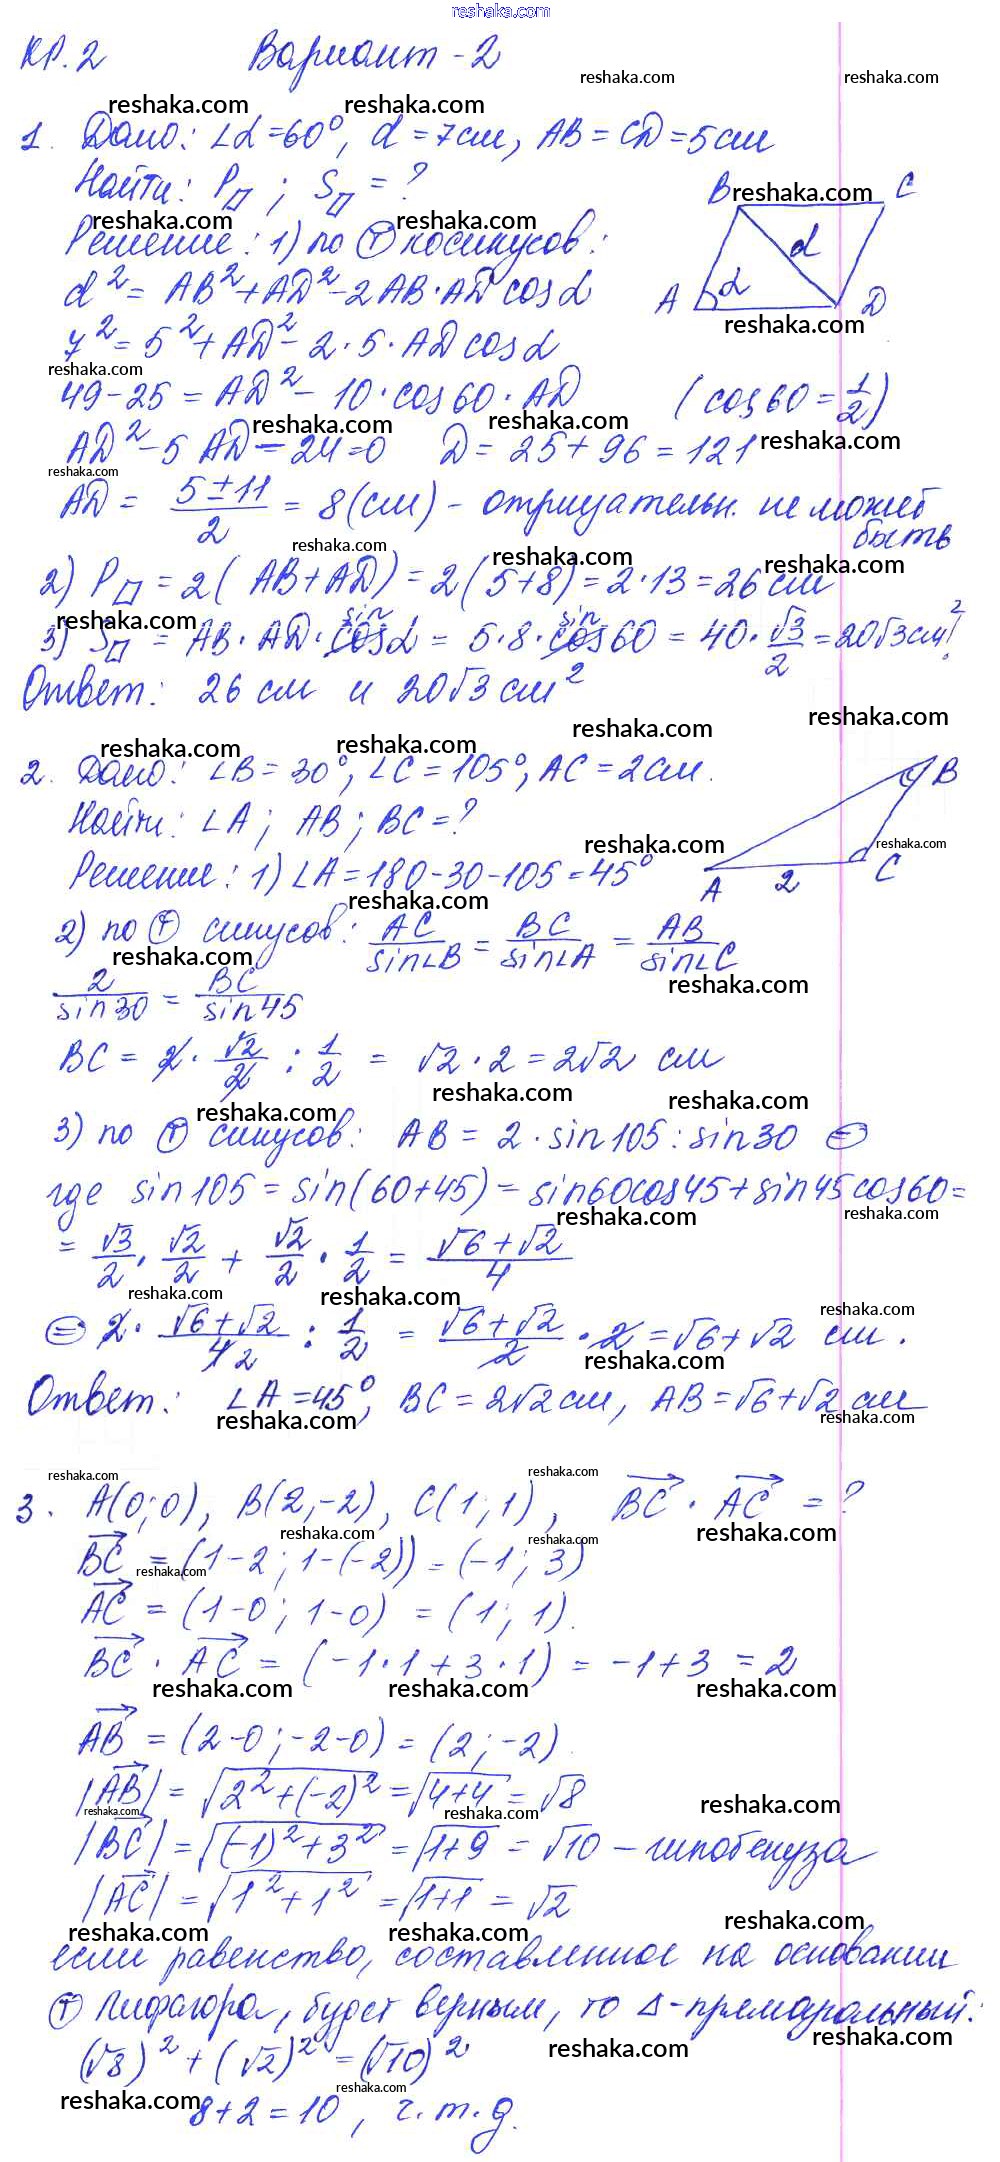 reshaka.com
КР.2 Вариант - 2
1. Дано: ∠α = 60°, d = 7см, AB = CD = 5см
Найти: P▱ ; S▱ = ?
B C
d
α
A D
Решение: 1) по Ⓣ косинусов:
d² = AB² + AD² - 2AB·AD cosα
7² = 5² + AD² - 2·5·AD cosα
49 - 25 = AD² - 10·cos60·AD (cos60 = 1/2)
AD² - 5AD - 24 = 0 D = 25 + 96 = 121
AD = (5±11)/2 = 8(см) - отрицательн. не может
быть
2) P▱ = 2(AB + AD) = 2(5+8) = 2·13 = 26 см
sin sin
3) S▱ = AB·AD·cosα = 5·8·cos60 = 40·√3/2 = 20√3см²!
Ответ: 26 см и 20√3 см²
2. Дано: ∠B = 30°, ∠C = 105°, AC = 2см.
B
A 2 C
Найти: ∠A ; AB ; BC = ?
Решение: 1) ∠A = 180-30-105 = 45°
2) по Ⓣ синусов: AC/sin∠B = BC/sin∠A = AB/sin∠C
2/sin30 = BC/sin45
BC = 2·√2/2 : 1/2 = √2·2 = 2√2 см
3) по Ⓣ синусов: AB = 2·sin105 : sin30 ⊜
где sin105 = sin(60+45) = sin60cos45 + sin45cos60 =
= √3/2 · √2/2 + √2/2 · 1/2 = (√6+√2)/4
⊜ 2·(√6+√2)/4 2 : 1/2 = (√6+√2)/2 · 2 = √6+√2 см.
Ответ: ∠A = 45°, BC = 2√2см, AB = √6+√2 см
3. A(0;0), B(2;-2), C(1;1), BC · AC = ?
BC = (1-2; 1-(-2)) = (-1; 3)
AC = (1-0; 1-0) = (1; 1).
BC · AC = (-1·1 + 3·1) = -1+3 = 2
AB = (2-0; -2-0) = (2; -2).
|AB| = √(2²+(-2)²) = √(4+4) = √8
|BC| = √((-1)²+3²) = √(1+9) = √10 - гипотенуза
|AC| = √(1²+1²) = √(1+1) = √2
если равенство, составленное на основании
Ⓣ Пифагора, будет верным, то Δ-прямоугольный:
(√8)² + (√2)² = (√10)²
8+2 = 10, ч.т.д.